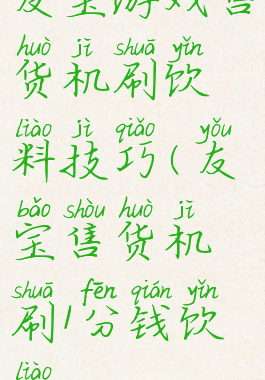 友宝游戏售
huò jī shuā yǐn
货机刷饮
liào jì qiǎo yǒu
料技巧(友
bǎo shòu huò jī
宝售货机
shuā fēn qián yǐn
刷1分钱饮
liào